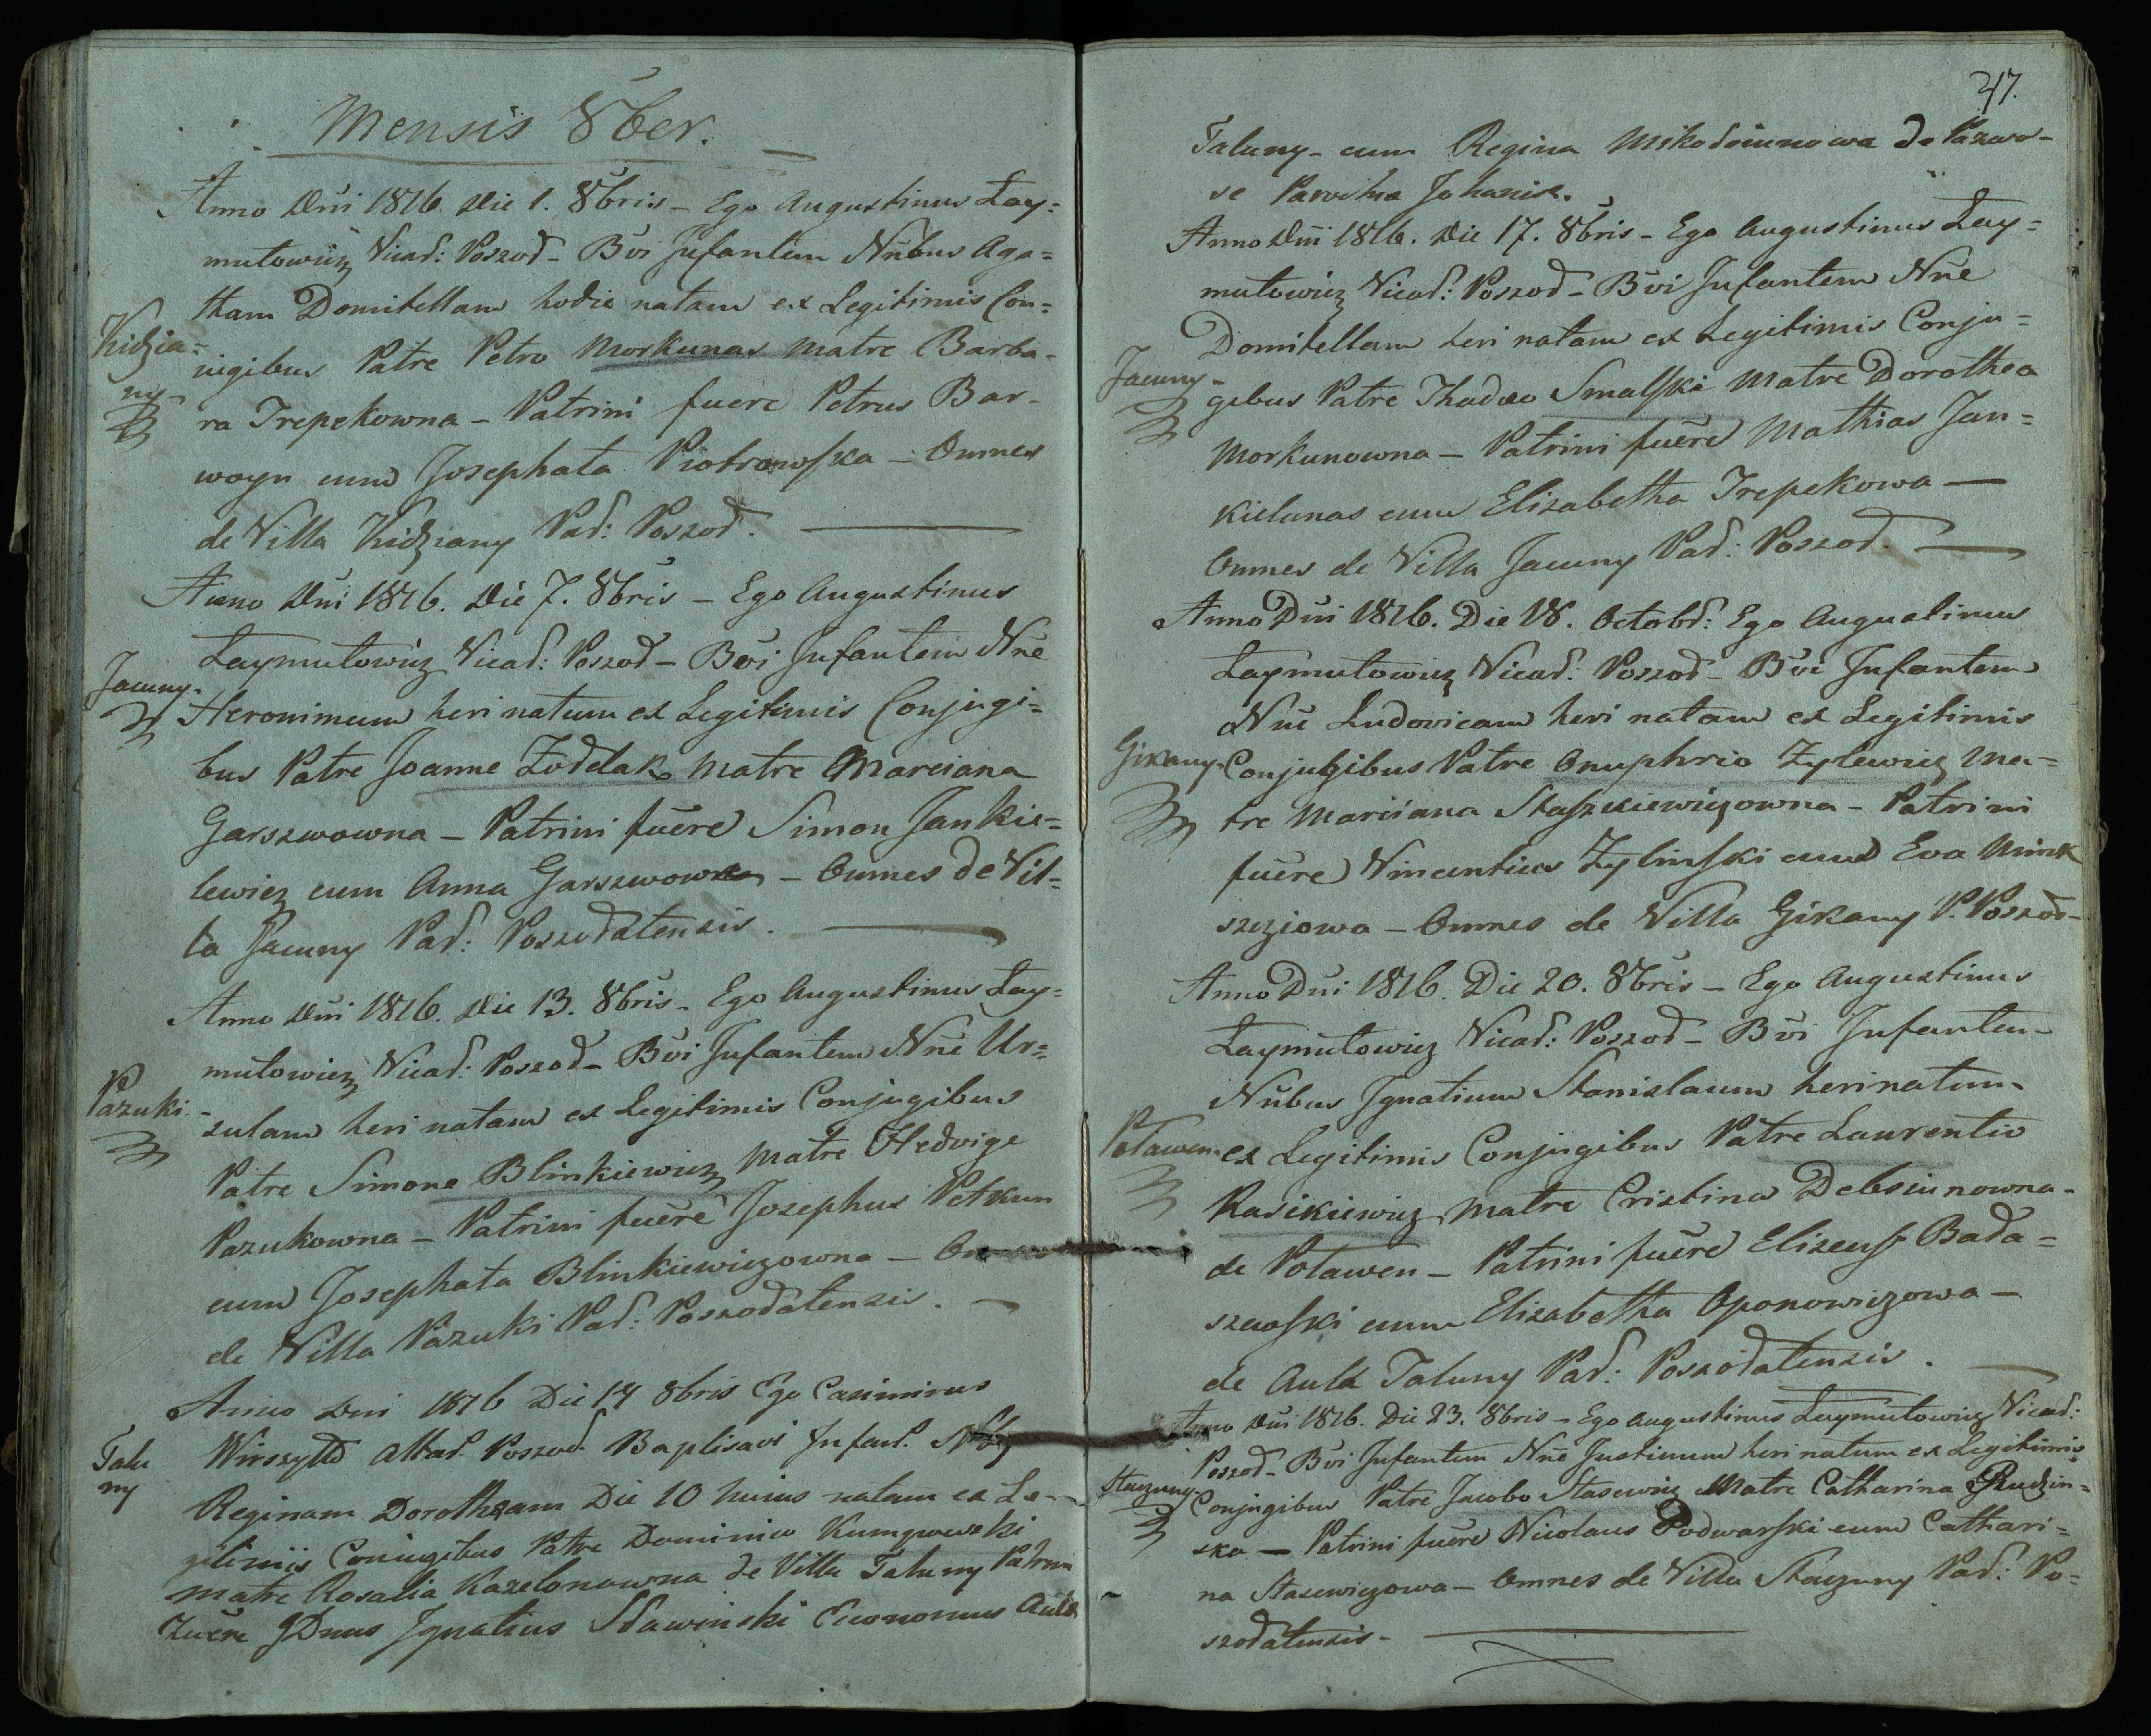 Mensis 8ber.
Anno Dni 1816. Die 1. 8bris - Ego Augustinus Lay=
mutowicz Vicad: Poszod - Bvi Infantem Nñbus Aga=
tham Domitellam hodie natam ex Legitimis Con=
Kidzia=
ny
iugibus Patre Petro Morkunas Matre Barba-
ra Trepekowna - Patrini fuere Petrus Bar-
woyn cum Josephata Piotrowska - Omnes
de Villa Kidziany Pad: Poszod.
Anno Dni 1816. Die 7. 8bris - Ego Augustinus
Laymutowicz Vicad: Poszod - Bvi Infantem Nñe
Jacuny.
Heronimum heri natum ex Legitimis Conjugi=
bus Patre Joanne Zodelak Matre Marciana
Garszwowna - Patrini fuere Simon Jankie=
lewicz cum Anna Garszwowna - Omnes de Vil=
la Jacuny Pad: Poszodatensis.
Anno Dni 1816. Die 13. 8bris - Ego Augustinus Lay=
mutowicz Vicad: Poszod - Bvi Infantem Nñe Ur=
Pazuki -
sulam heri natam ex Legitimis Conjugibus
Patre Simone Blinkiewicz Matre Hedvige
Pazukowna - Patrini fuere Josephus Petkun
cum Josephata Blinkiewiczowna -
de Villa Pazuki Pad: Poszodatensis.
Anno Dni 1816 Die 14 8bris Ego Casimirus
Talu
ny
Wirszyłło Altad. Poszod. Baptisavi Infad.
Reginam Dorotheam Die 10 huius natam ex Le-
gitimis Coniugibus Patre Dominico
Matre Rosalia Kazelonowna de Villa Taluny Patrini
fuere GDnus Ignatius Sławinski Economus Aula
247.
Taluny - cum Regina de
se Johanisz.
Anno Dni 1816. Die 17. 8bris - Ego Augustinus Lay=
mutowicz Vicad: Poszod - Bvi Infantem Nñe
Domitellam heri natam ex Legitimis Conju=
Jacuny -
gibus Patre Thadeo Smalski Matre Dorothea
Morkunowna - Patrini fuere Mathias Jan=
kielunas cum Elizabetha Trepekowa -
Omnes de Villa Jacuny Pad: Poszod.
Anno Dni 1816. Die 18. Octobd: Ego Augustinus
Laymutowicz Vicad: Poszod - Bvi Infantem
Nñe Ludovicam heri natam ex Legitimis
Gikany.
Conjugibus Patre Onuphrio Zylewicz Ma=
tre Mariiana Staszkiewiczowna - Patrini
fuere Vincentius Zylinski cum Eva
szcziowa - Omnes de Villa Gikany P. Poszod -
Anno Dni 1816. Die 20. 8bris - Ego Augustinus
Laymutowicz Vicad: Poszod - Bvi Infantem
Nñbus Ignatium Stanislaum heri natum
Potawen.
ex Legitimis Conjugibus Patre Laurentio
Rasikiewicz Matre Cristina Debsiunowna -
de Potawen - Patrini fuere Bada=
szewski cum Elizabetha Oponowiczowa -
de Aula Taluny Pad: Poszodatensis.
Anno Dni 1816. Die 23. 8bris - Ego Augustinus Laymutowicz Vicad:
Poszod - Bvi Infantem Nñe Justinum heri natum ex Legitimis
Staczuny.
Conjugibus Patre Jacobo Stasewicz Matre Catharina Rudzin=
ska - Patrini fuere Nicolaus Podwarski cum Cathari=
na Stasewiczowa - Omnes de Villa Staczuny Pad: Po=
szodatensis -